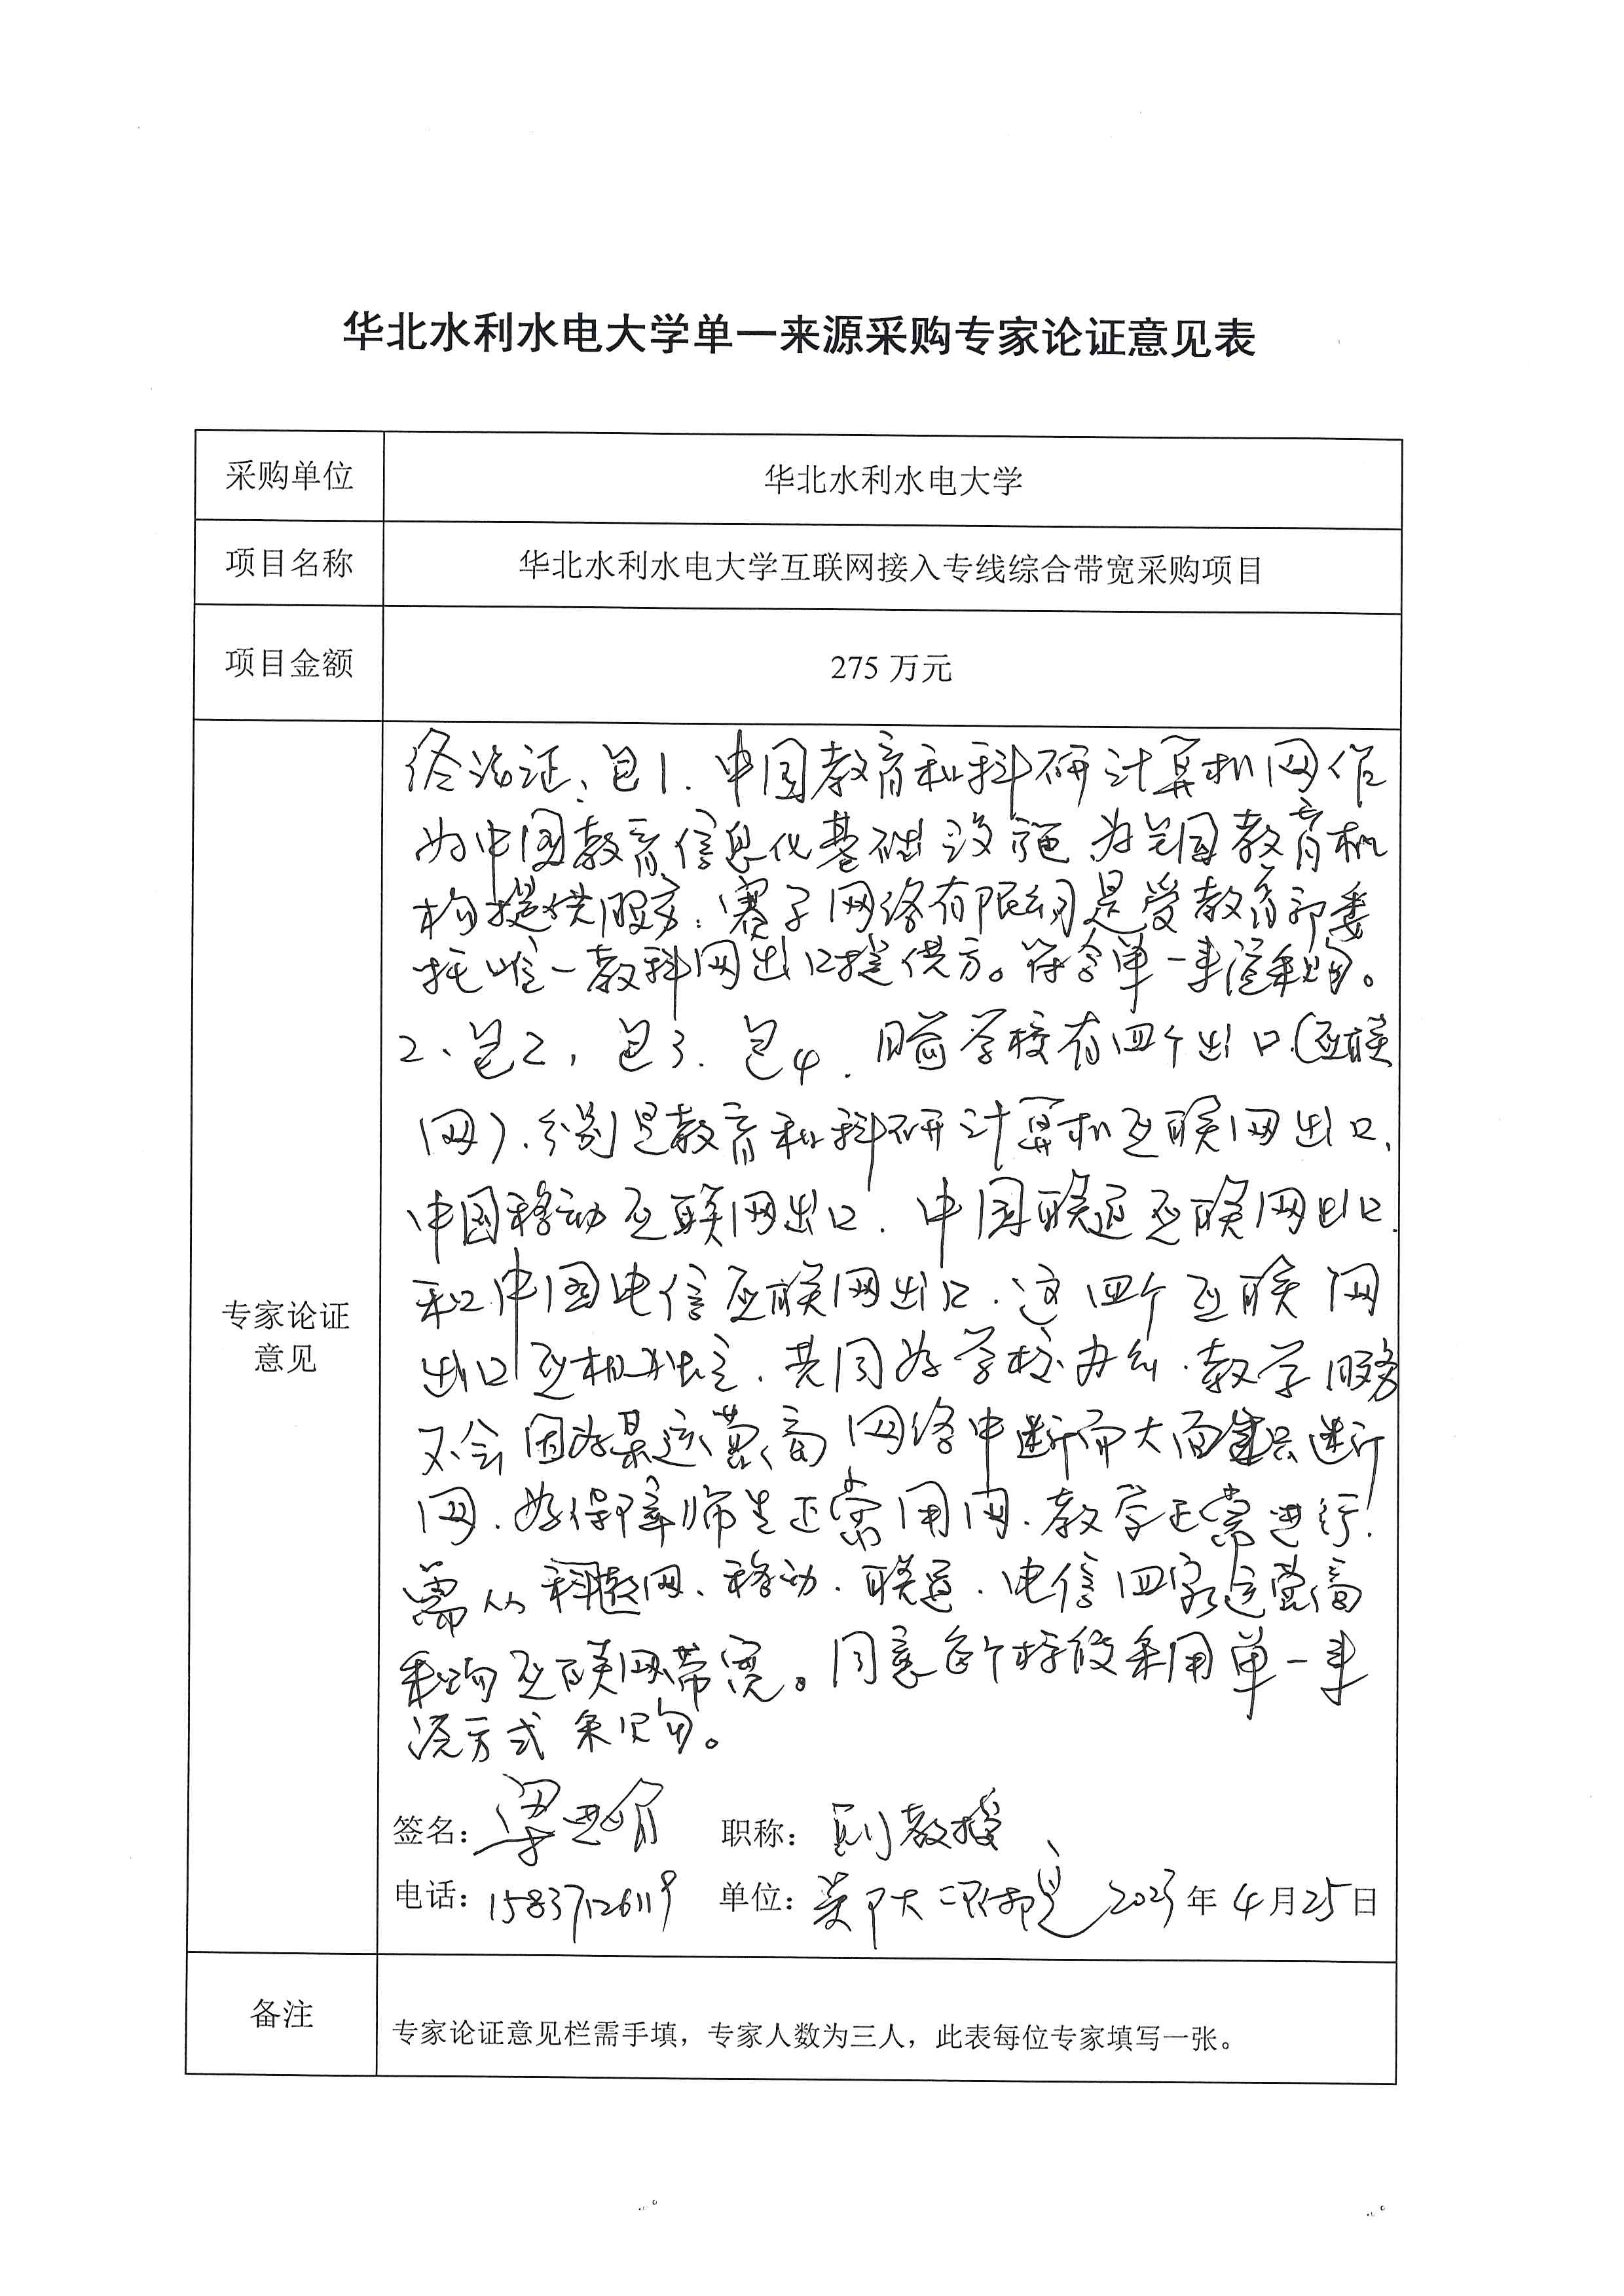 华北水利水电大学单一来源采购专家论证意见表
采购单位 华北水利水电大学
项目名称 华北水利水电大学互联网接入专线综合带宽采购项目
项目金额 275 万元
专家论证意见
经论证、包1.中国教育和科研计算机网作
为中国教育信息化基础设施为全国教育机
构提供服务.赛尔网络有限公司是受教育部委
托唯一教科网出口提供方。符合单一来源采购。
2、包2,包3.包4.目前学校有四个出口(互联
网).分别是教育和科研计算机互联网出口、
中国移动互联网出口.中国联通互联网出口.
和中国电信互联网出口.这四个互联网
出口互相独立.共同为学校办公.教学服务
不会因为某运营商网络中断而大面积断
网.为保障师生正常用网.教学正常进行.
需从科教网、移动.联通.电信四家运营商
采购互联网带宽。同意每个标段采用单一来
源方式采购。
签名: 职称:副教授
电话:15837126119 单位: 2023年4月25日
备注 专家论证意见栏需手填，专家人数为三人，此表每位专家填写一张。